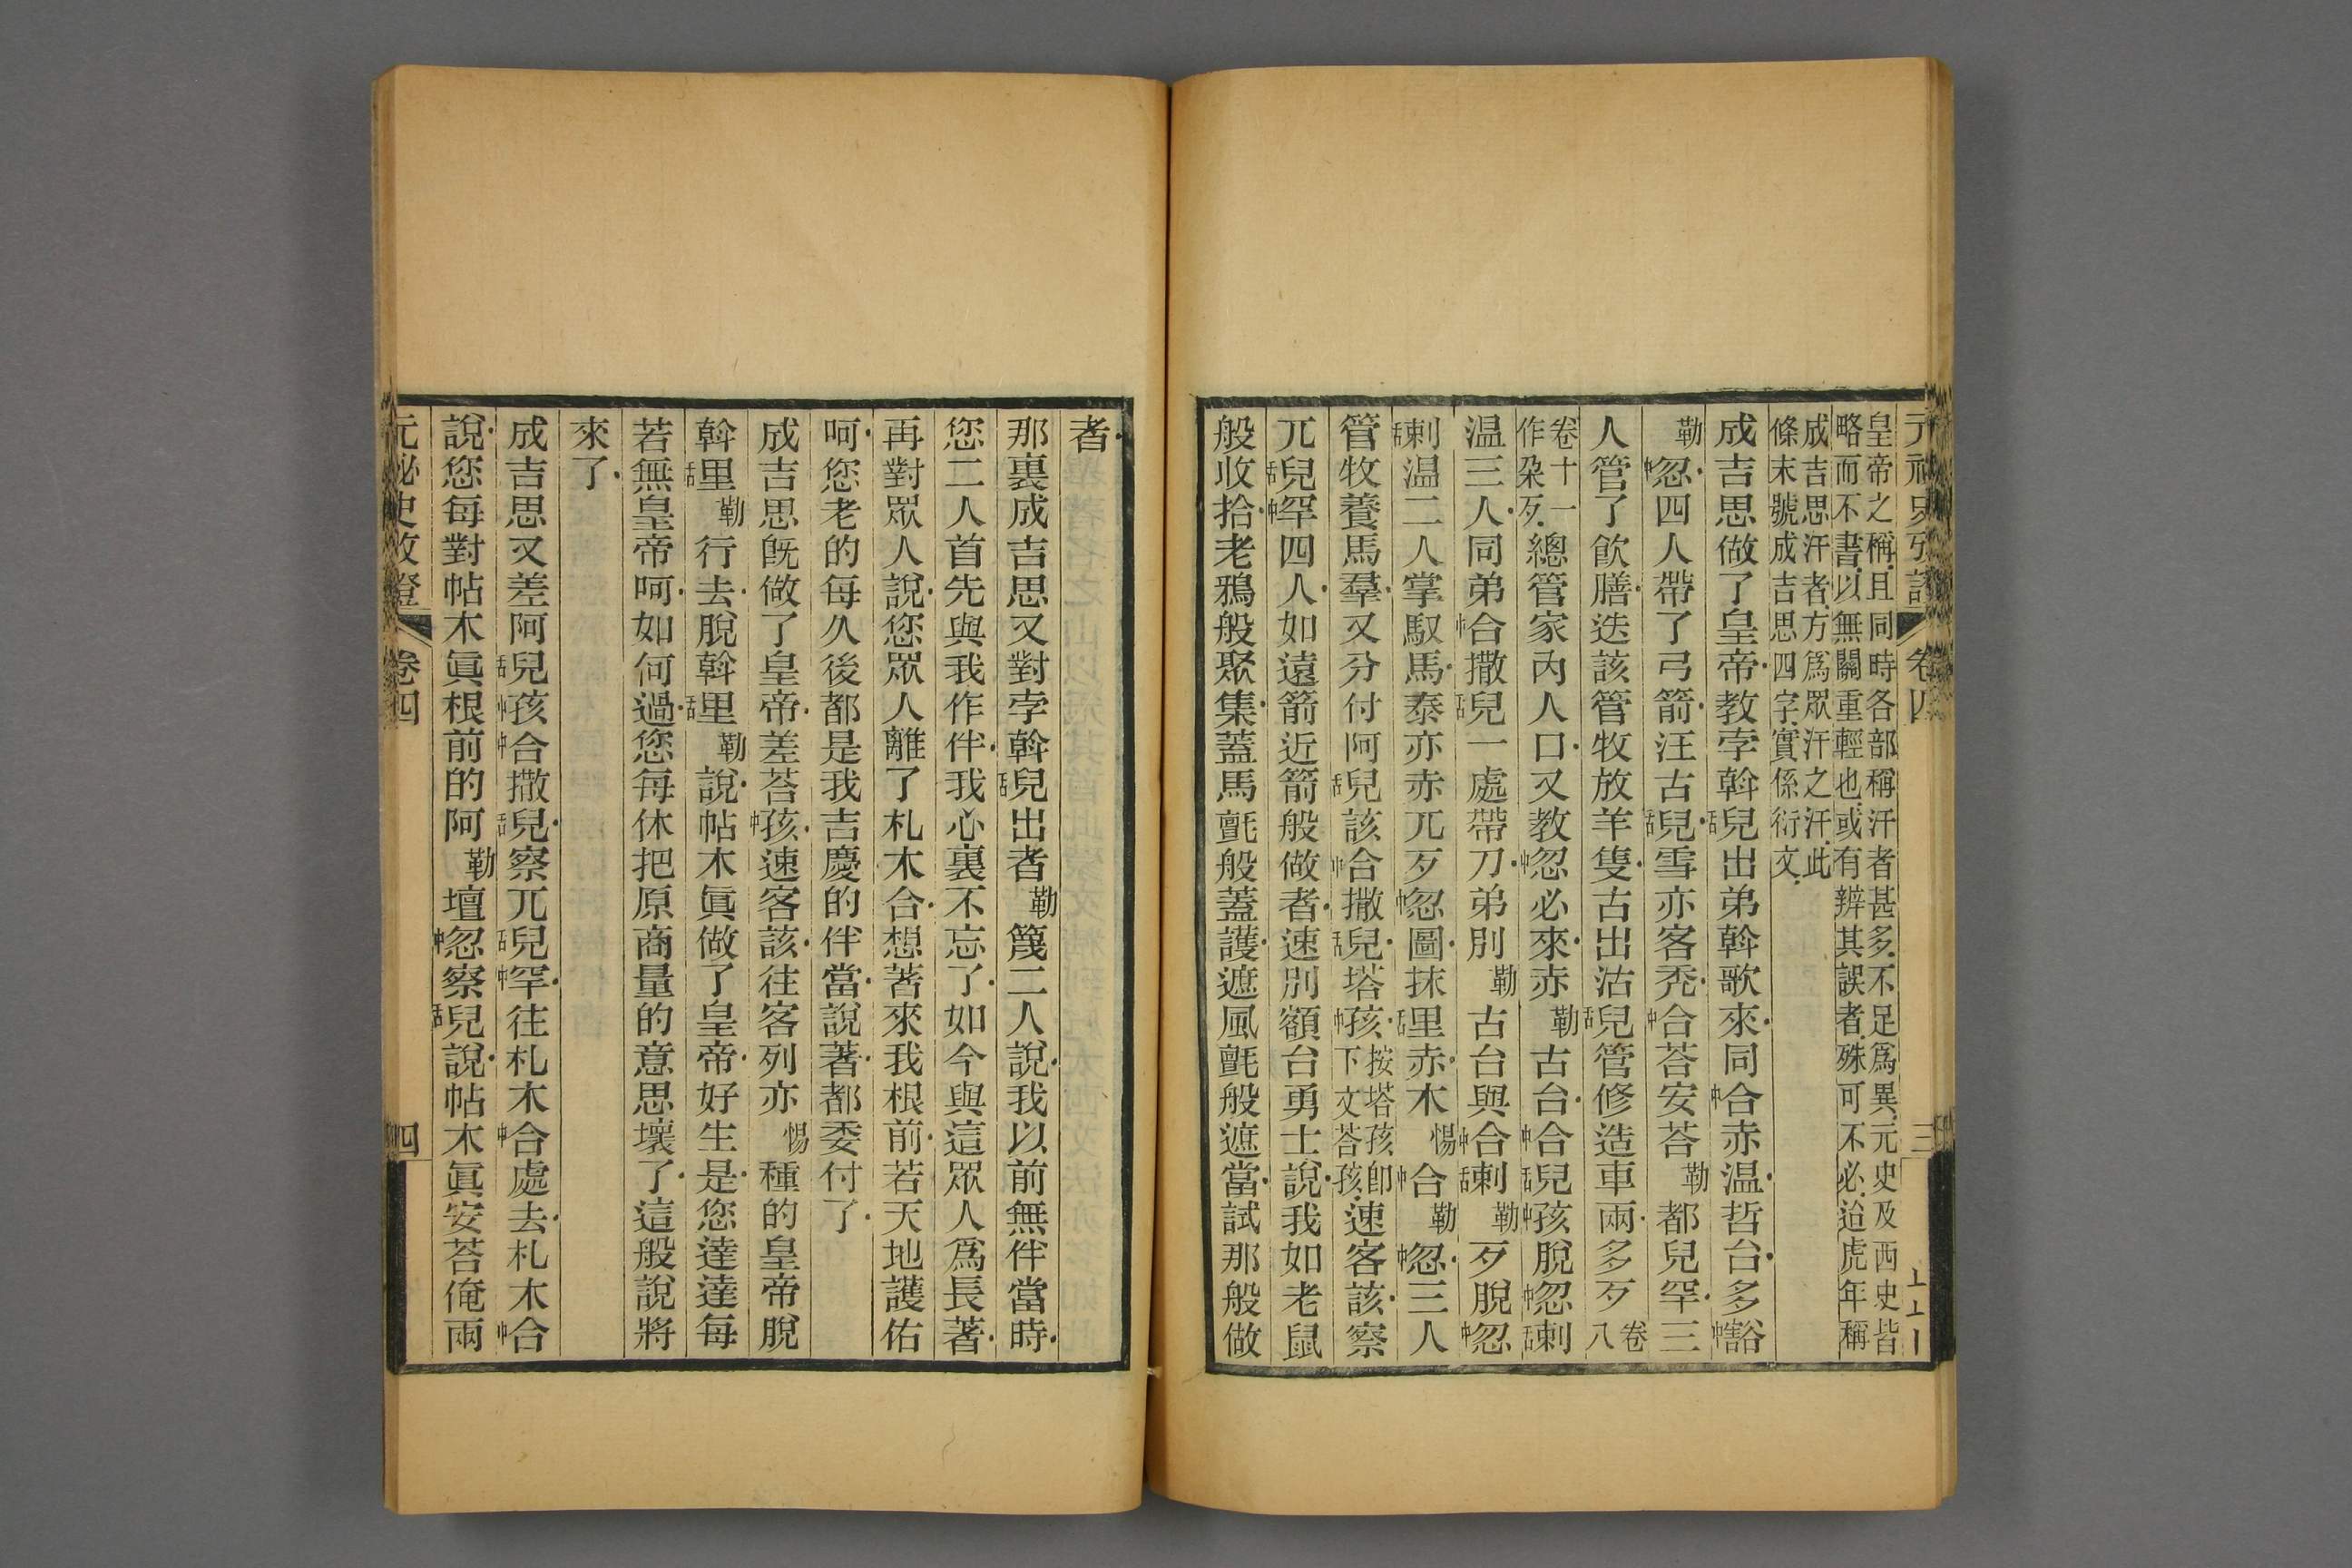 元祕史攷證 卷四 三
皇帝之稱且同時各部稱汗者甚多不足爲異元史及西史皆
略而不書以無關重輕也或有辨其誤者殊可不必迨虎年稱
成吉思汗者方爲眾汗之汗此
條末號成吉思四字實係衍文
成吉思做了皇帝教孛斡舌兒出弟斡歌來同中合赤温哲台多中豁
勒中忽四人帶了弓箭汪古舌兒雪亦客禿中合荅安荅勒都兒罕三
人管了飲膳迭該管牧放羊隻古出沽舌兒管修造車兩多歹卷八
卷十一
作朶歹總管家內人口又教中忽必來赤勒古台中合舌兒中孩脫中忽舌剌
温三人同弟中合撒舌兒一處帶刀弟別勒古台與中合舌剌勒歹脫中忽
舌剌温二人掌馭馬泰亦赤兀歹中忽圖抹舌里赤木惕中合勒中忽三人
管牧養馬羣又分付阿舌兒該中合撒舌兒塔中孩按塔孩卽
下文荅孩速客該察
兀舌兒中罕四人如遠箭近箭般做者速別額台勇士說我如老鼠
般收拾老鴉般聚集蓋馬氈般蓋護遮風氈般遮當試那般做
者
那裏成吉思又對孛斡舌兒出者勒篾二人說我以前無伴當時
您二人首先與我作伴我心裏不忘了如今與這眾人爲長著
再對眾人說您眾人離了札木合想著來我根前若天地護佑
呵您老的每久後都是我吉慶的伴當說著都委付了
成吉思旣做了皇帝差荅中孩速客該往客列亦惕種的皇帝脫
斡舌里勒行去脫斡舌里勒說帖木眞做了皇帝好生是您達達每
若無皇帝呵如何過您每休把原商量的意思壞了這般說將
來了
成吉思又差阿舌兒中孩中合撒舌兒察兀舌兒中罕往札木中合處去札木中合
說您每對帖木眞根前的阿勒壇中忽察舌兒說帖木眞安荅俺兩
元祕史攷證 卷四 四